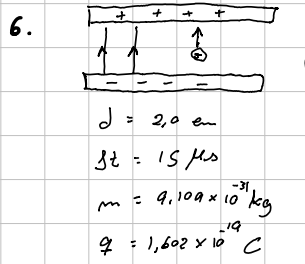 6.
+ + + +
-
- - - -
d = 2,0 cm
δt = 15 μs
m = 9,109 × 10^-31 kg
q = 1,602 × 10^-19 C